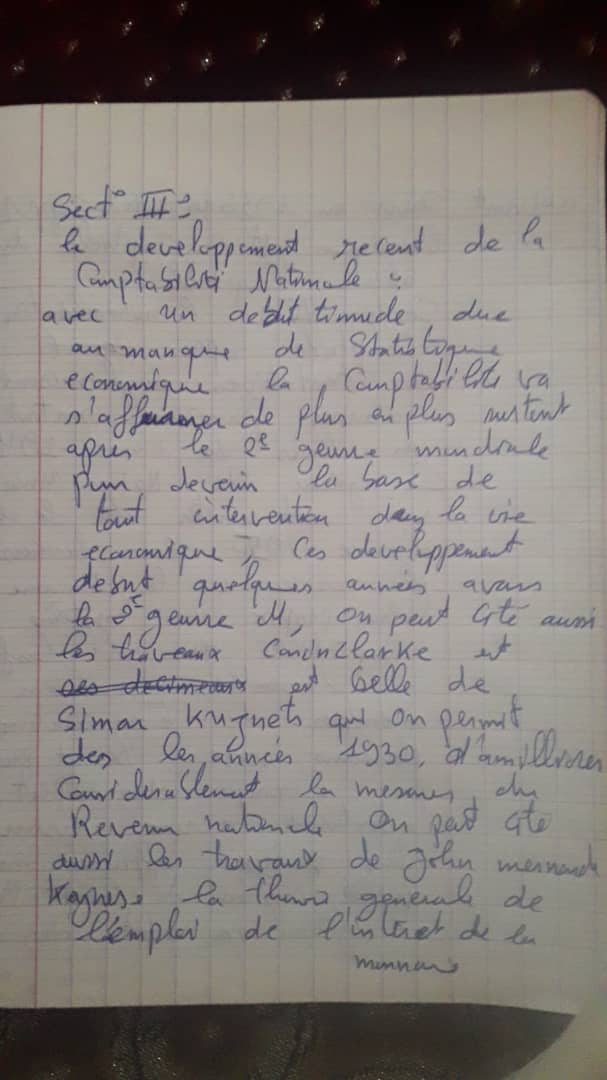 Sect° III :
le developpement recent de la
Comptabilité Nationale :
avec un debut timide due
au manque de Statistique
economique la Comptabilité va
s'affirmer de plus en plus surtout
apres le 2e geurre mondiale
pour devenir la base de
tout intervention dans la vie
economique, Ces developpement
debut quelques années avans
la 2e geurre M, on peut Cité aussi
les traveaux Coninclarke et
est Celle de
Simar Kuznets qui on permit
des les années 1930, d'amilliorer
Considerablement la mesures du
Revenu nationale On peut Cité
aussi les travaux de John
Kaynes. la general de
l'emploi de l'intret de la